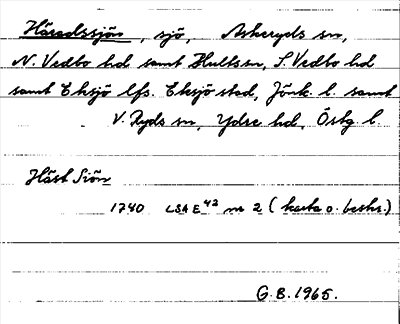 Häradssjön, sjö, Askeryds sn,
N. Vedbo hd samt Hults sn, S. Vedbo hd
samt Eksjö lfs. Eksjö stad, Jönk. l. samt
V. Ryds sn, Ydre hd, Östg. l.
Häst Siön
1740 LSA E42 nr 2 (karta o. beskr.)
G.B. 1965.